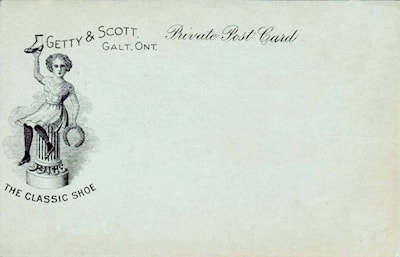 Getty & Scott,
Galt, Ont.
Private Post Card
THE CLASSIC SHOE